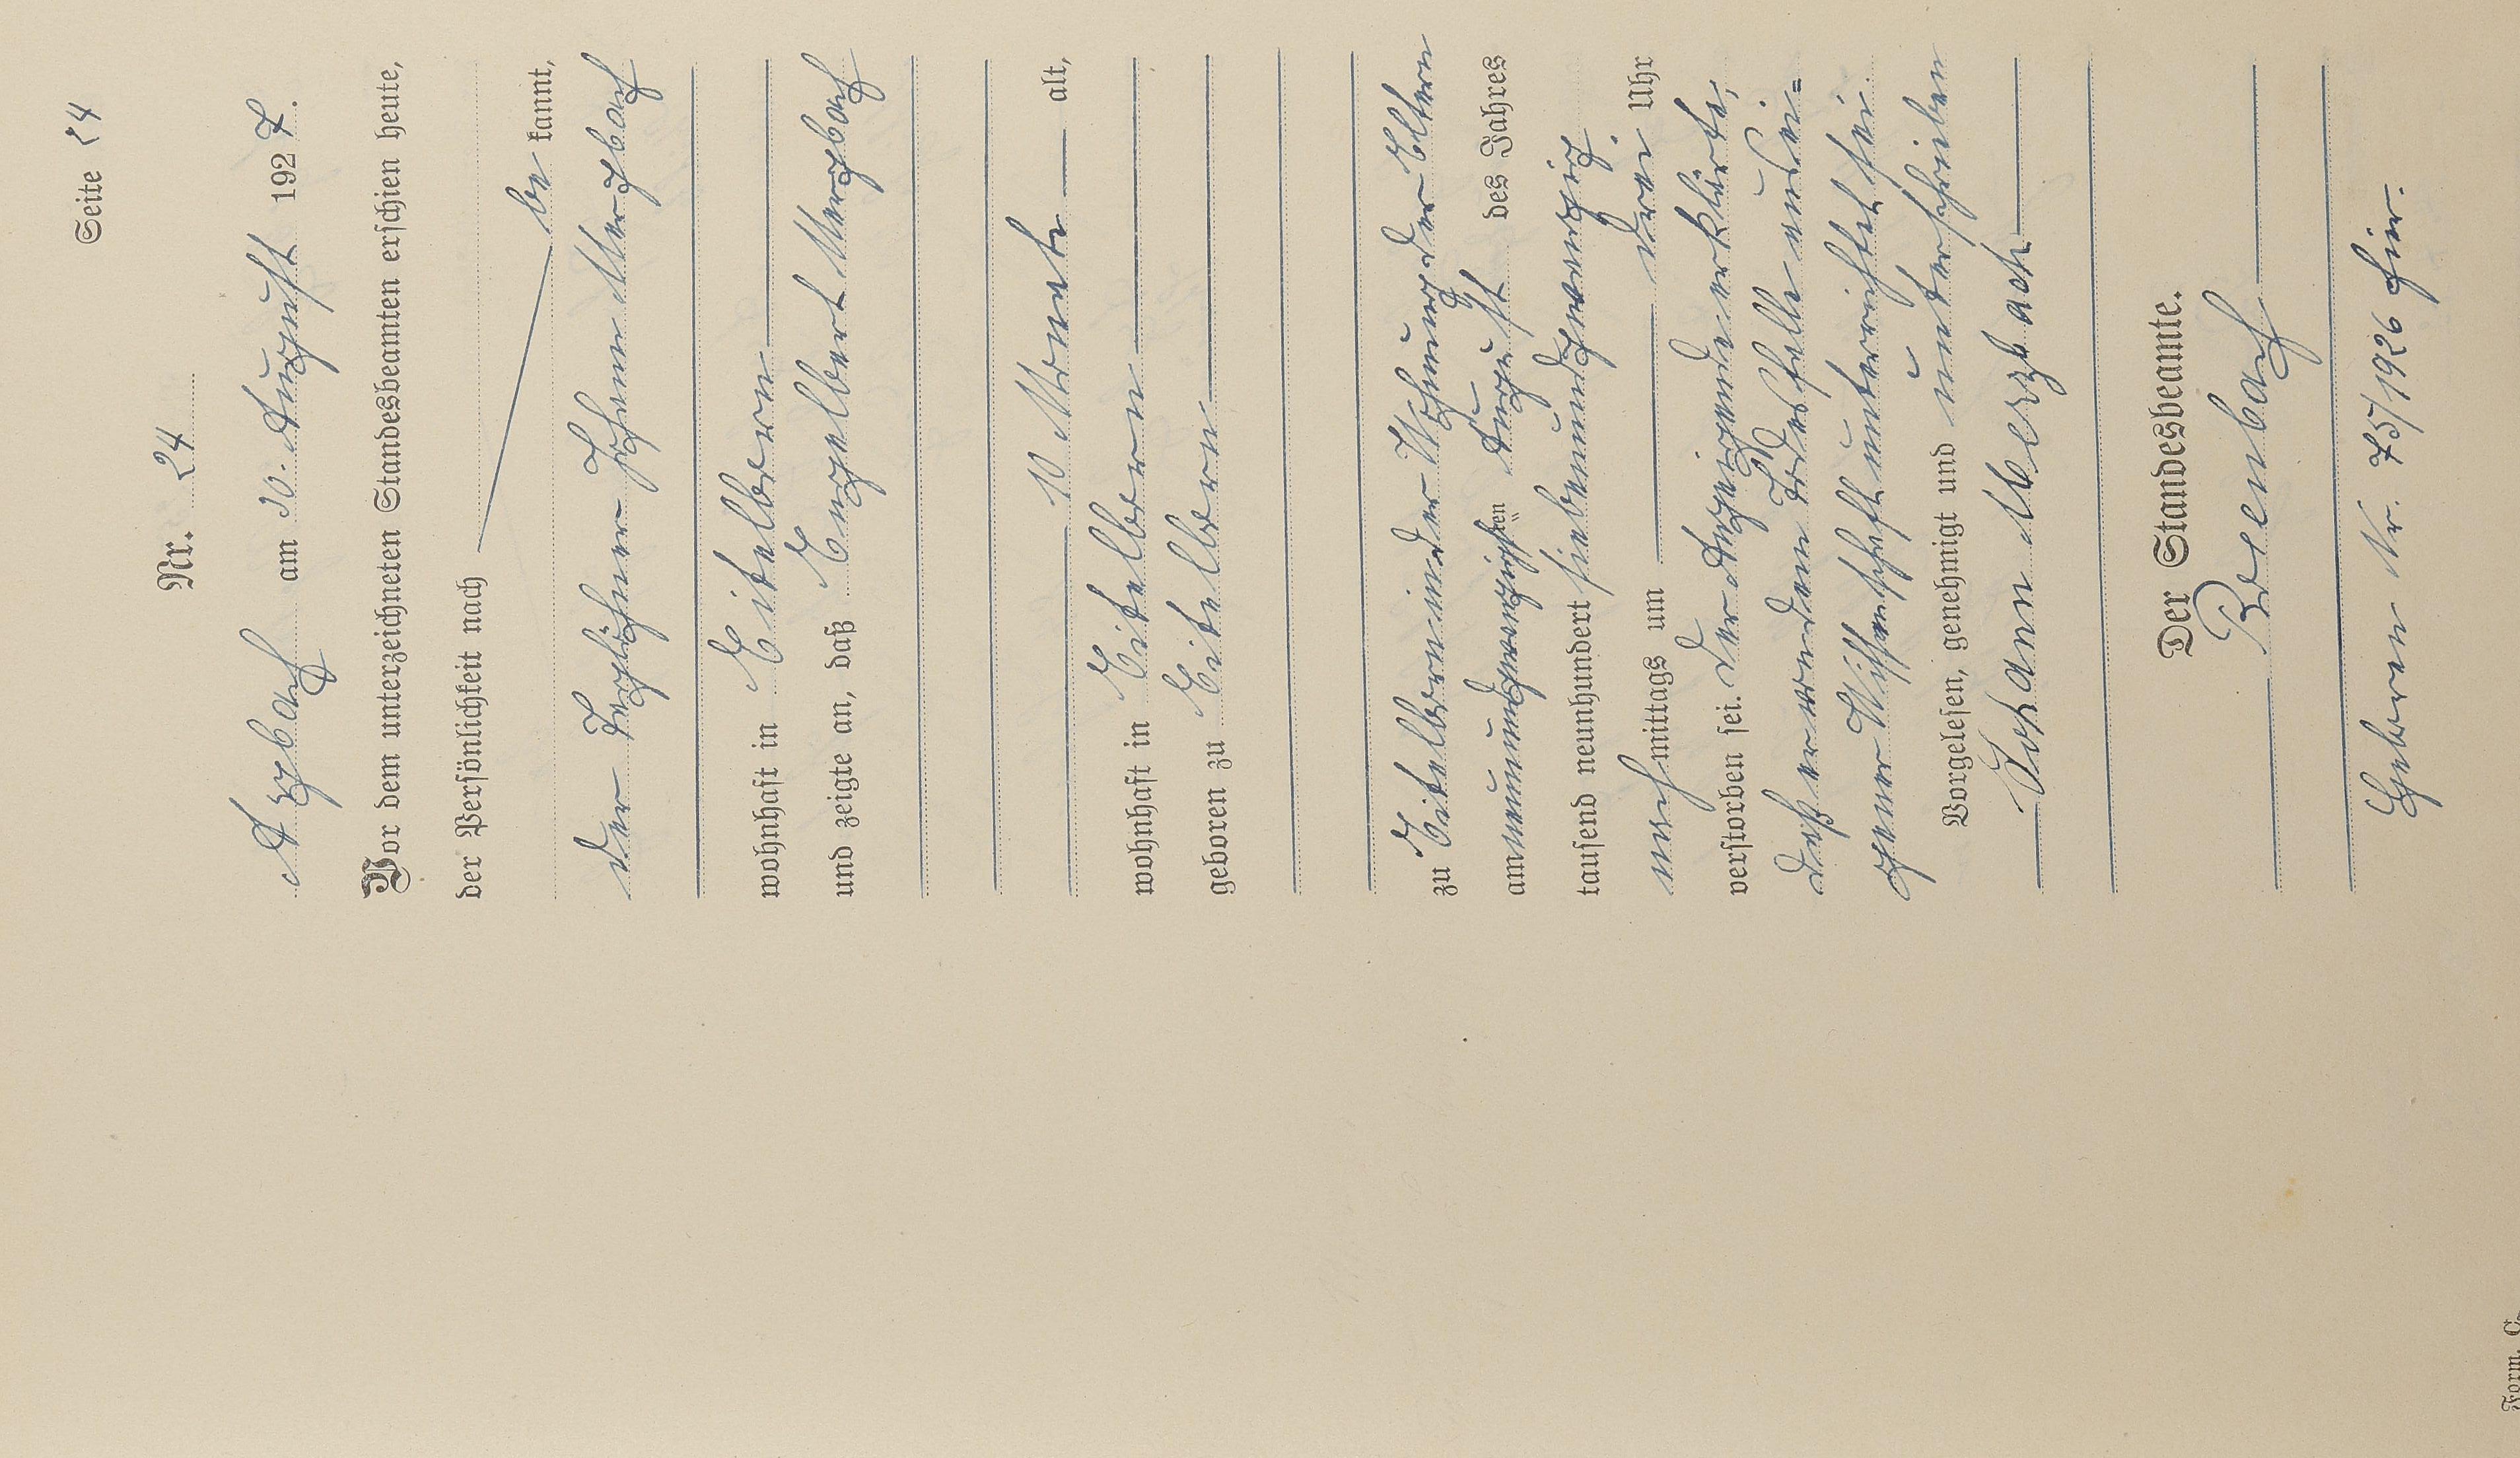 Seite 24
Nr. 24
Arzbach am 30. August 1927.
Vor dem unterzeichneten Standesbeamten erschien heute,
der Persönlichkeit nach
be kannt,
der Taglöhner Johann Merzbach
wohnhaft in Eitelborn
und zeigte an, daß Engelbert Merzbach
10 Monate alt,
wohnhaft in Eitelborn
geboren zu Eitelborn
zu Eitelborn in der Wohnung der Eltern
am neunundzwanzigsten August des Jahres
tausend neunhundert siebenundzwanzig
nach mittags um drei Uhr
verstorben sei. Der Anzeigende erklärte,
daß er von dem Todesfalle aus ei=
gener Wissenschaft unterrichtet sei.
Vorgelesen, genehmigt und unterschrieben
Johann Merzbach
Der Standesbeamte.
Geboren Nr. 75/1926 hier.
Form. C.